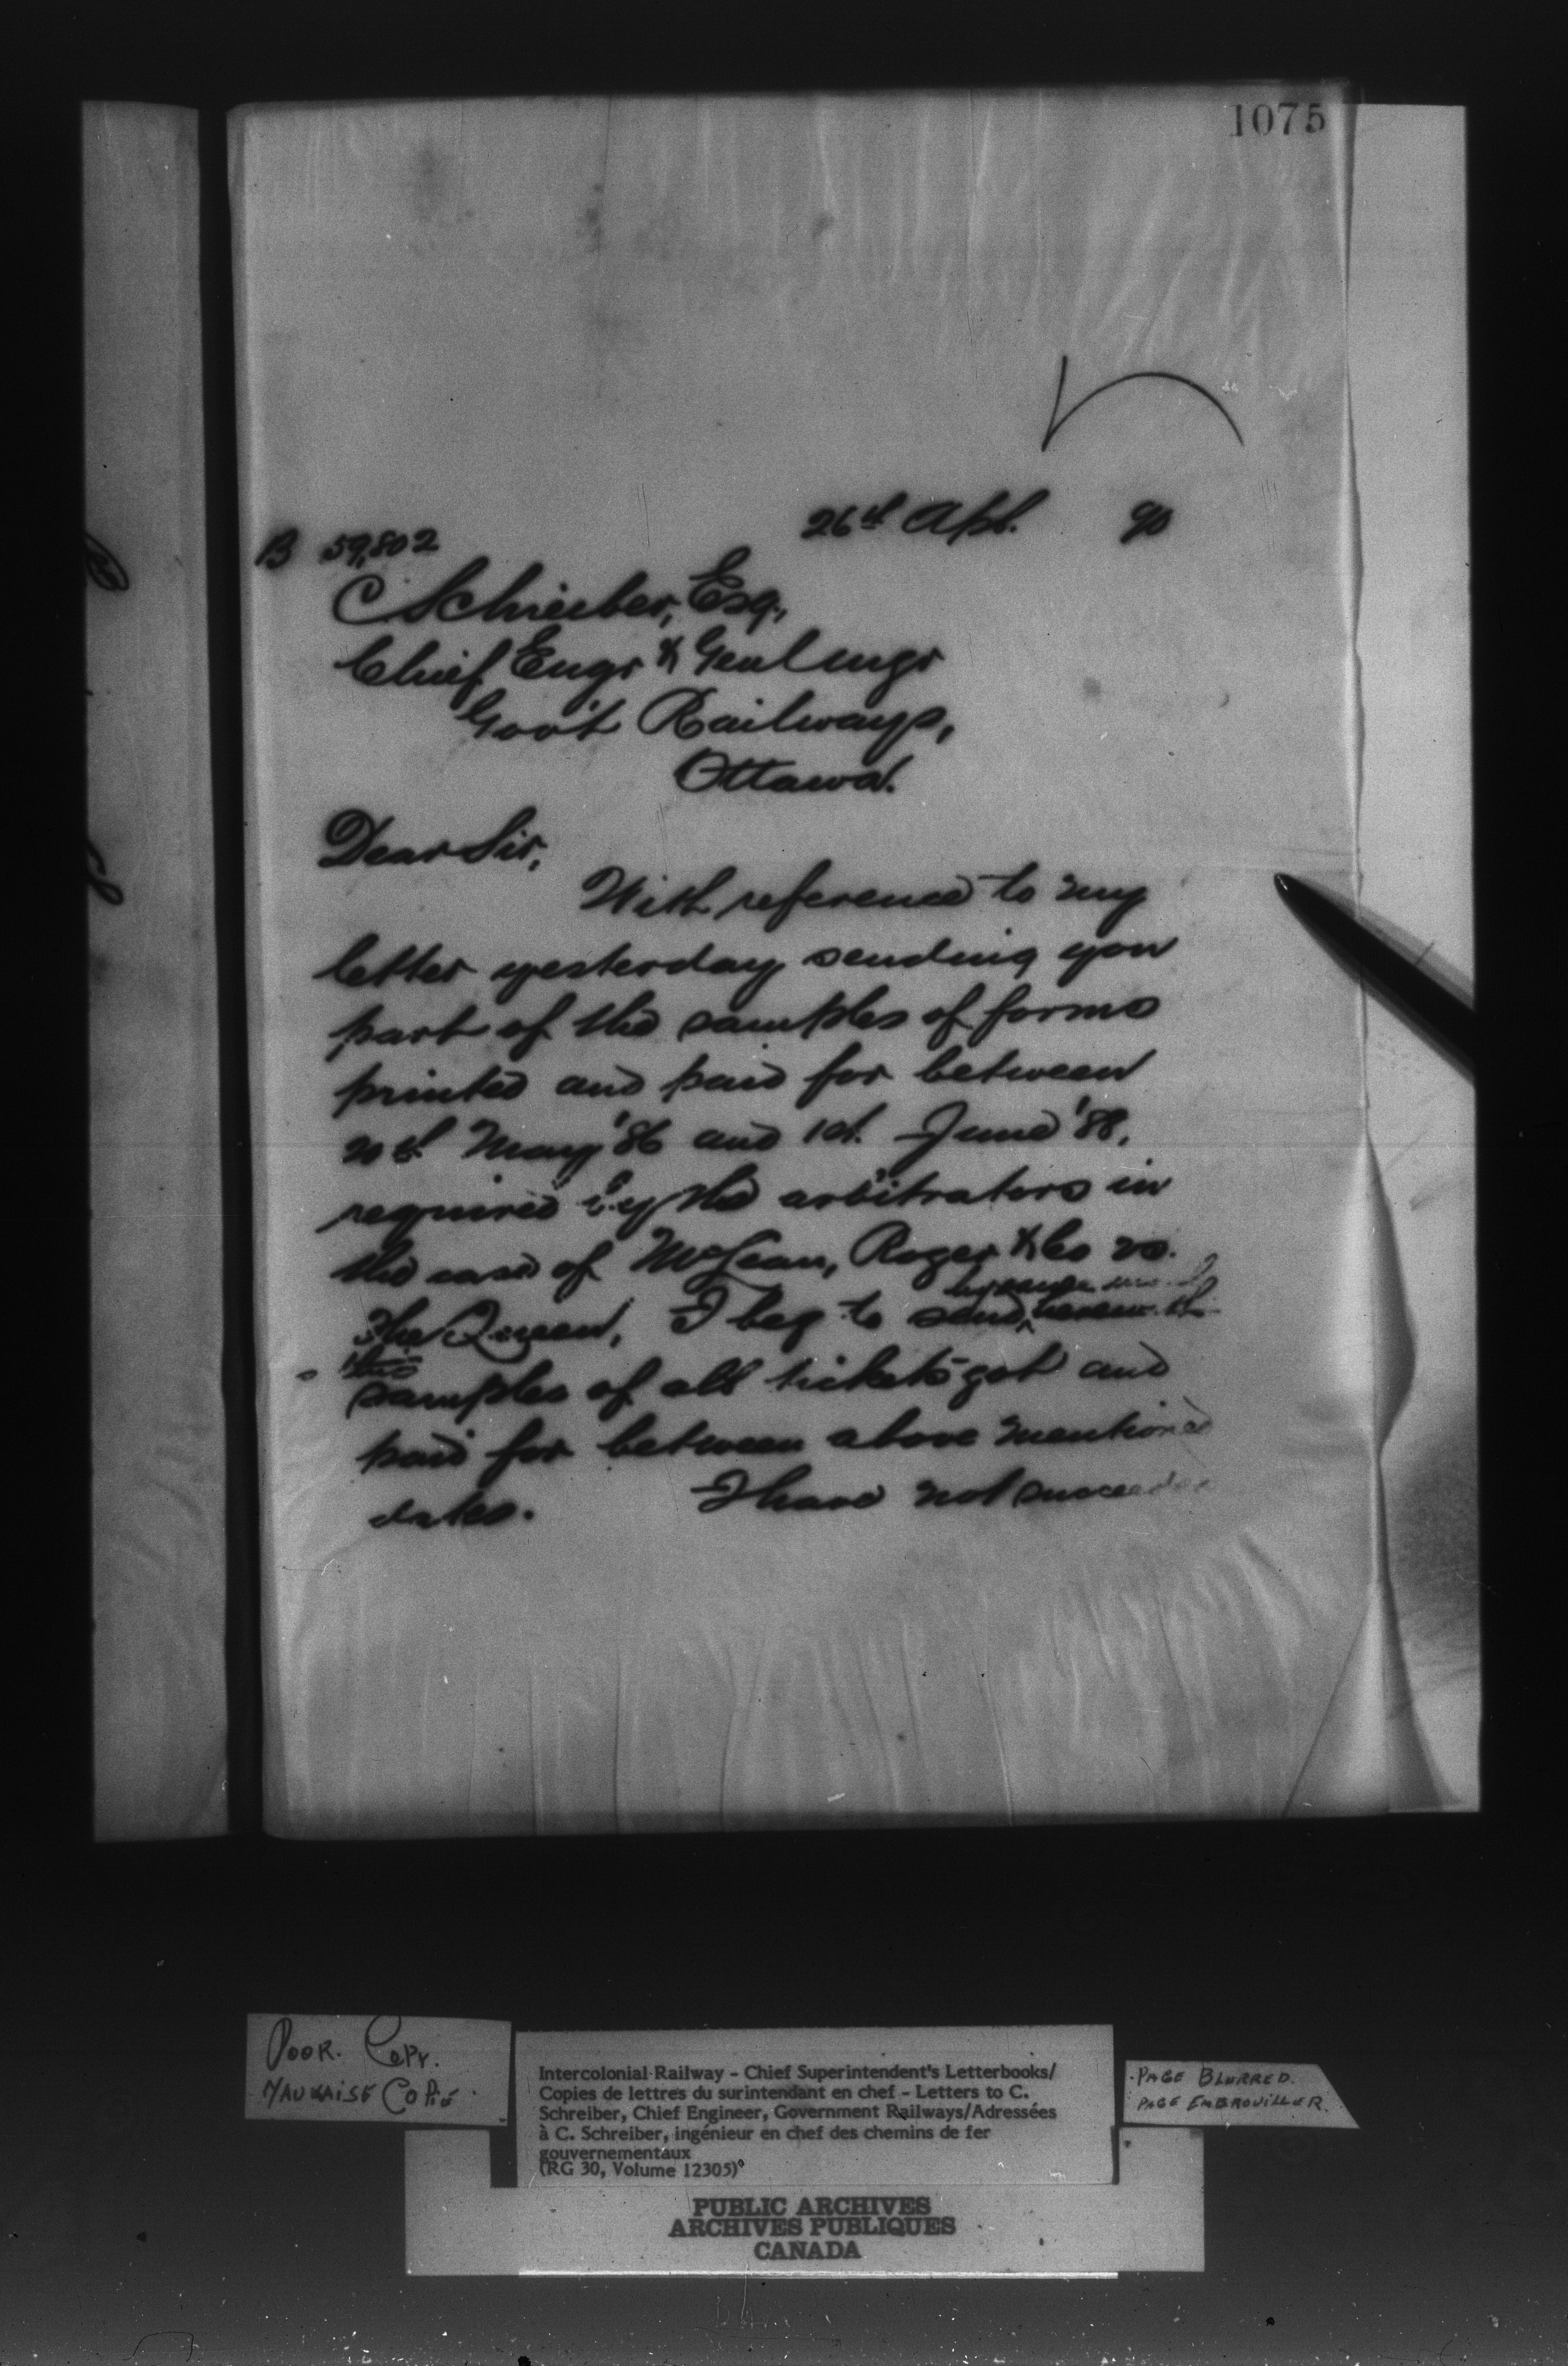 1075
26th Apl. 90
B 59,802
C Schreiber, Esq,
Chief Engr & Genl Mngr
Gov't Railways,
Ottawa.
Dear Sir,
With reference to my
letter yesterday sending you
part of the samples of forms
printed and paid for between
20th May '86 and 1st June '88,
required by the arbitrators in
the case of McLean, Roger & Co vs.
by
The Queen, I beg to send herewith
the
samples of all tickets got and
paid for between above mentioned
dates. I have not succeeded
POOR. COPY.
MAUVAISE COPIE.
Intercolonial Railway - Chief Superintendent's Letterbooks/
Copies de lettres du surintendant en chef - Letters to C.
Schreiber, Chief Engineer, Government Railways/Adressées
à C. Schreiber, ingénieur en chef des chemins de fer
gouvernementaux
(RG 30, Volume 12305)
PAGE BLURRED.
PAGE EMBROUILLER.
PUBLIC ARCHIVES
ARCHIVES PUBLIQUES
CANADA